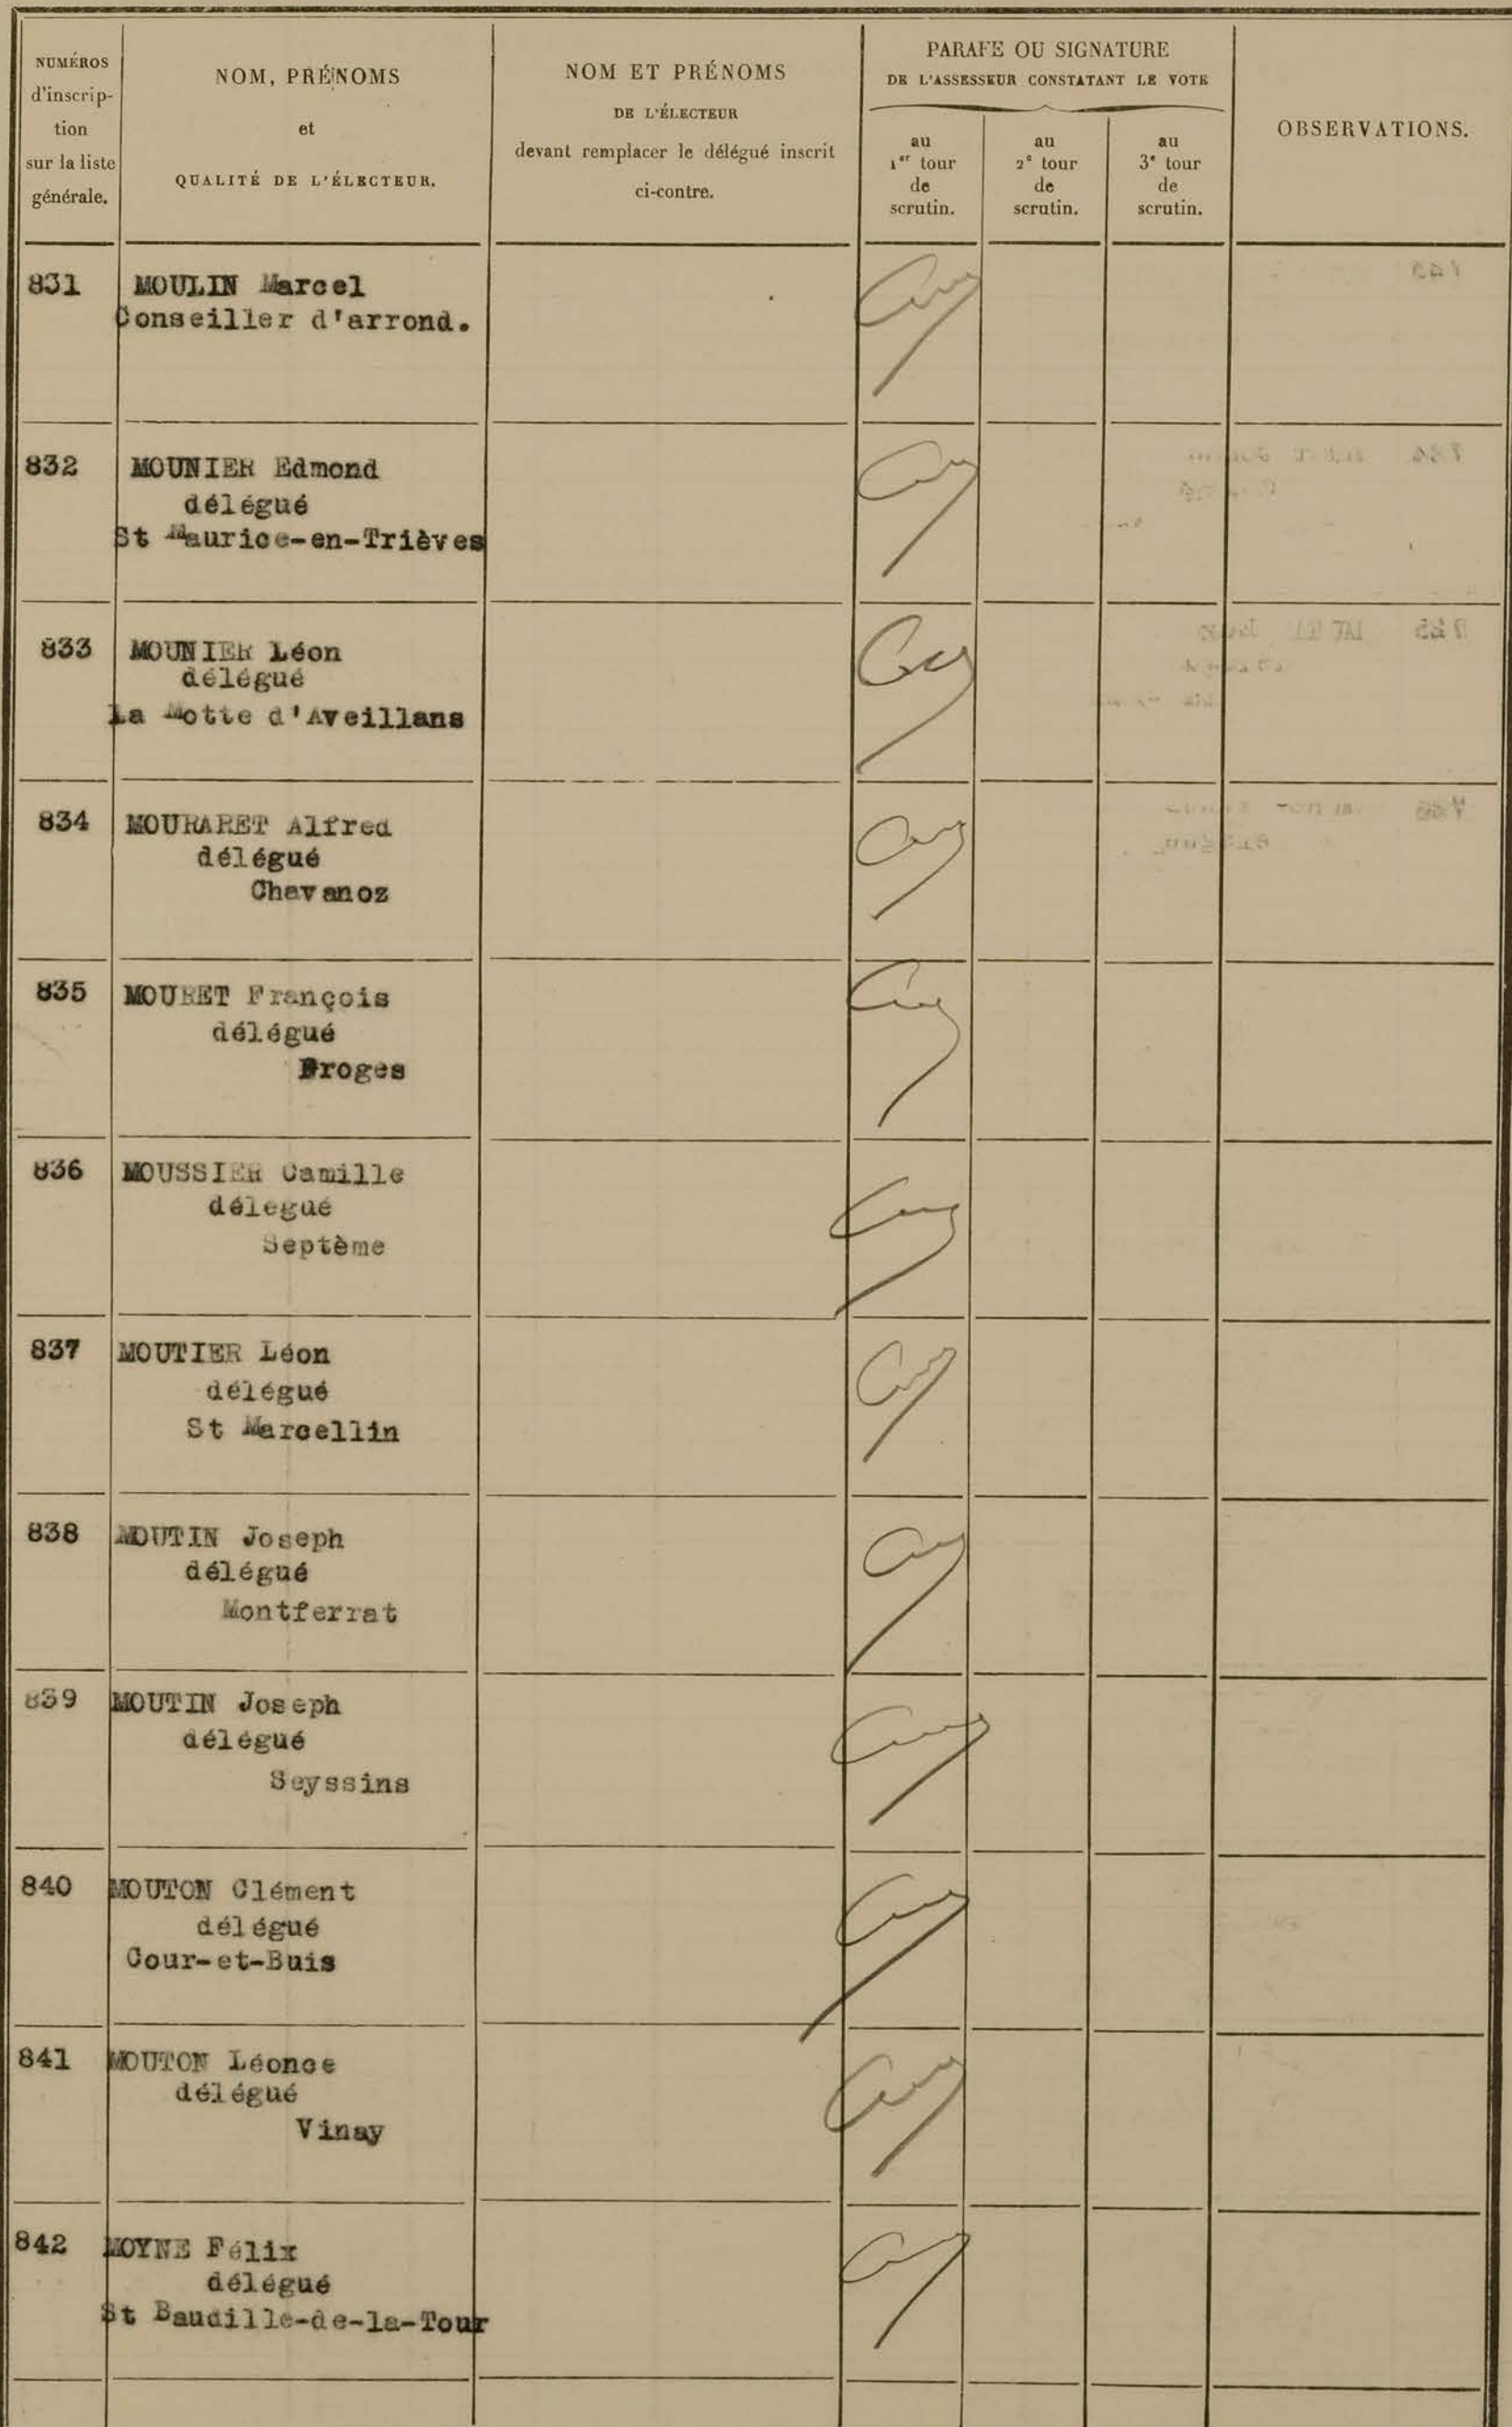 NUMÉROS
d'inscrip-
tion
sur la liste
générale.
NOM, PRÉNOMS
et
QUALITÉ DE L'ÉLECTEUR.
NOM ET PRÉNOMS
DE L'ÉLECTEUR
devant remplacer le délégué inscrit
ci-contre.
PARAFE OU SIGNATURE
DE L'ASSESSEUR CONSTATANT LE VOTE
au
1er tour
de
scrutin.
au
2e tour
de
scrutin.
au
3e tour
de
scrutin.
OBSERVATIONS.
831 MOULIN Marcel
Conseiller d'arrond.
832 MOUNIER Edmond
délégué
St Maurice-en-Trièves
833 MOUNIER Léon
délégué
La Motte d'Aveillans
834 MOURARET Alfred
délégué
Chavanoz
835 MOURET François
délégué
Froges
836 MOUSSIER Camille
délégué
Septème
837 MOUTIER Léon
délégué
St Marcellin
838 MOUTIN Joseph
délégué
Montferrat
839 MOUTIN Joseph
délégué
Seyssins
840 MOUTON Clément
délégué
Cour-et-Buis
841 MOUTON Léonce
délégué
Vinay
842 MOYNE Félix
délégué
St Baudille-de-la-Tour